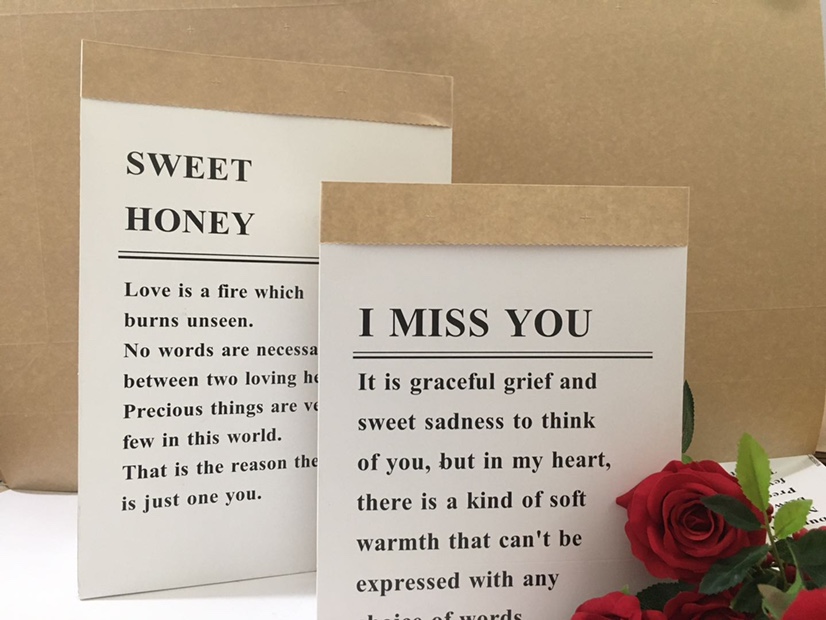 SWEET
HONEY
Love is a fire which
burns unseen.
No words are
between two loving
Precious things are
few in this world.
That is the reason
is just one you.
I MISS YOU
It is graceful grief and
sweet sadness to think
of you, but in my heart,
there is a kind of soft
warmth that can't be
expressed with any
of words